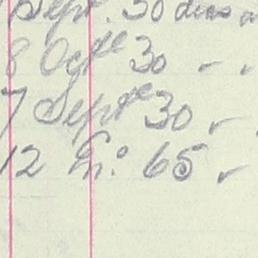 Sept. 30 dias
8 Octe 30 - -
7 Septe 30 -
12 En.o 65 -